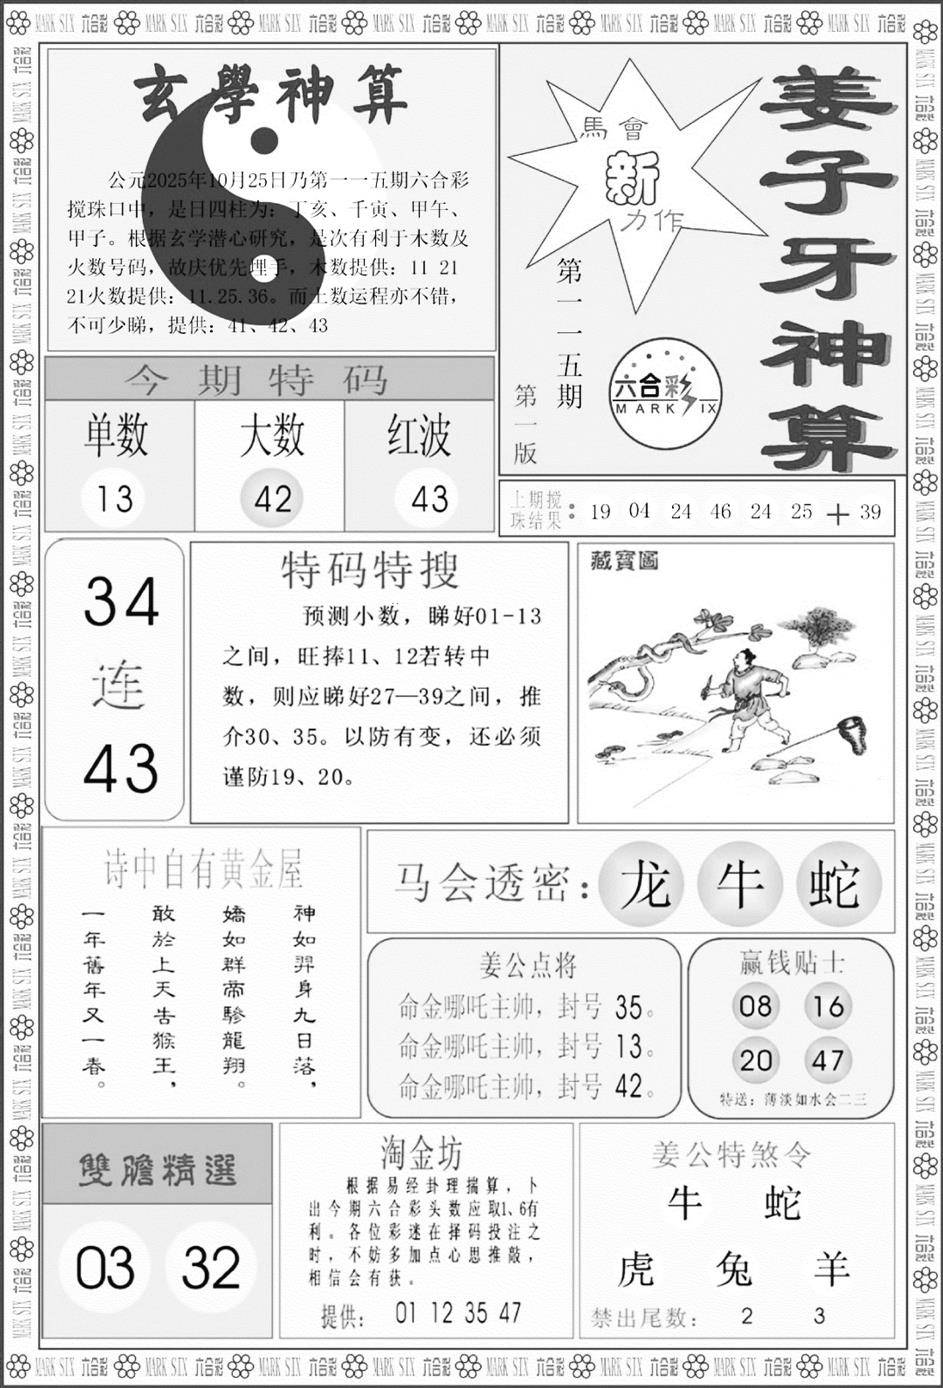 玄學神算
公元2025年10月25日乃第一一五期六合彩
搅珠口中，是日四柱为：丁亥、千寅、甲午、
甲子。根据玄学潜心研究，是次有利于木数及
火数号码，故庆优先埋手，木数提供：11 21
21火数提供：11.25.36。而土数运程亦不错，
不可少睇，提供：41、42、43
馬會
新
力作
第一一五期
第一版
六合彩
MARK SIX
姜子牙神算
今期特码
单数 大数 红波
13 42 43
上期搅
珠结果：19 04 24 46 24 25 + 39
34
连
43
特码特搜
预测小数，睇好01-13
之间，旺捧11、12若转中
数，则应睇好27—39之间，推
介30、35。以防有变，还必须
谨防19、20。
藏寶圖
诗中自有黄金屋
神如羿身九日落，
嬌如群帝驂龍翔。
敢於上天告猴王，
一年舊年又一春。
马会透密：龙 牛 蛇
姜公点将
命金哪吒主帅，封号 35。
命金哪吒主帅，封号 13。
命金哪吒主帅，封号 42。
赢钱贴士
08 16
20 47
特送：薄淡如水会二三
雙膽精選
03 32
淘金坊
根据易经卦理揣算，卜
出今期六合彩头数应取1、6有
利。各位彩迷在择码投注之
时，不妨多加点心思推敲，
相信会有获。
提供： 01 12 35 47
姜公特煞令
牛 蛇
虎 兔 羊
禁出尾数： 2 3